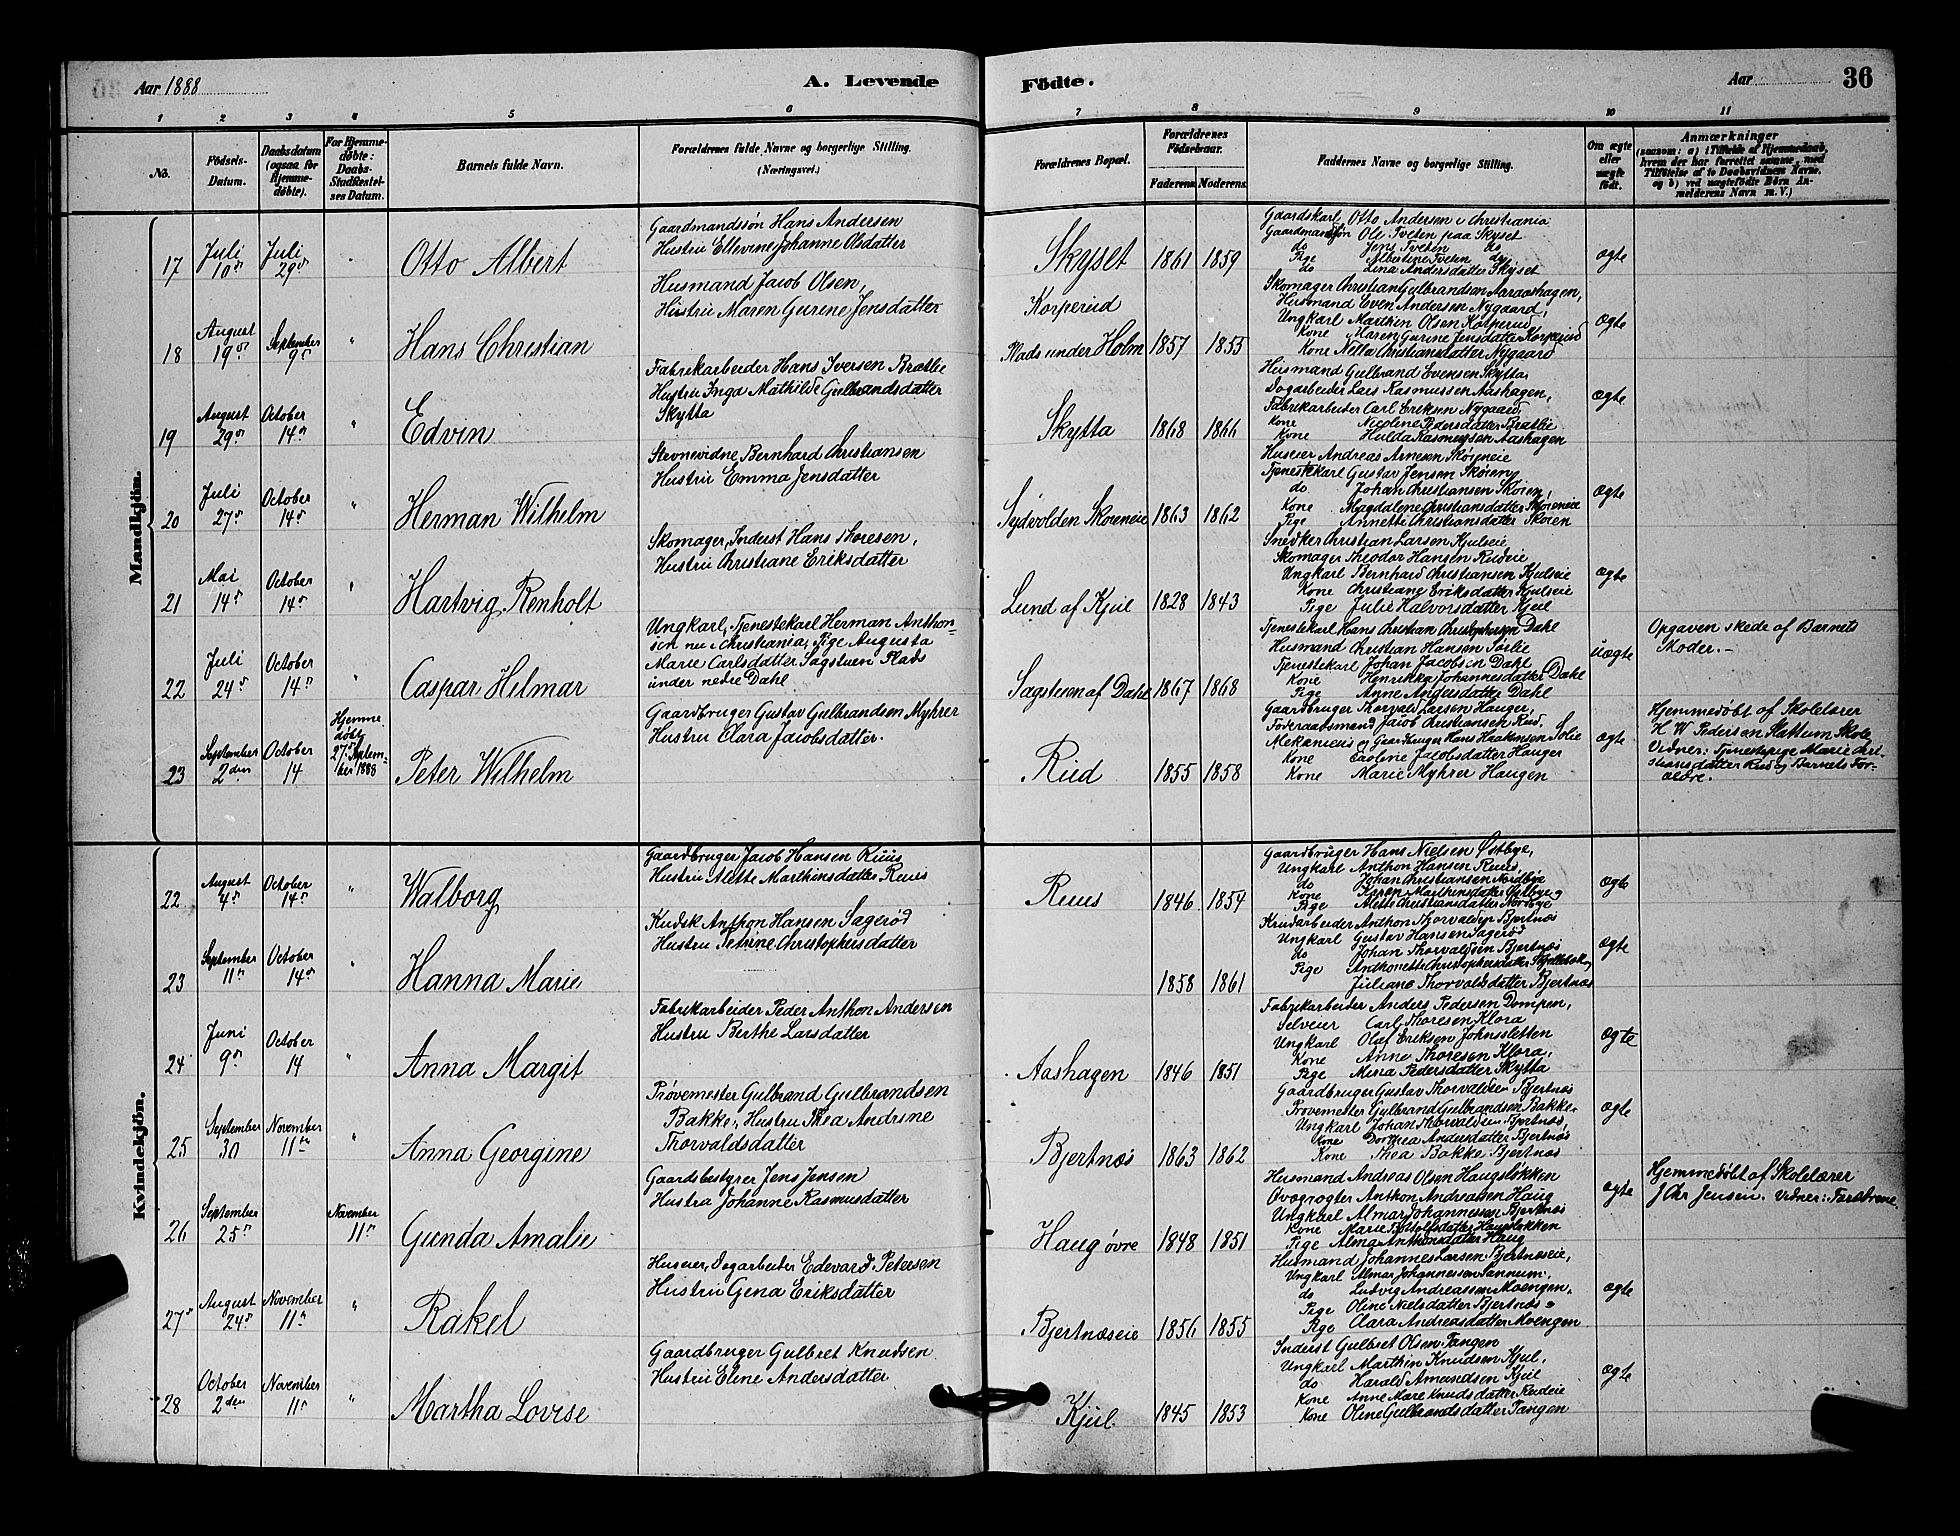 Aar 1888
A. Levende
Födte.
Aar
36
1
2
3
4
5
6
7
8
9
10
11
No.
Födsels-Datum.
Daabsdatum (ogsaa for Hjemmedöbte).
For Hjemmedöbte: Daabs-Stadfæstelses Datum.
Barnets fulde Navn.
Forældrenes fulde Navne og borgerlige Stilling.
(Næringsvei.)
Forældrenes Bopæl.
Forældrenes Födselsaar.
Faderens.
Moderens.
Faddernes Navne og borgerlige Stilling.
Om ægte eller uægte født.
Anmærkninger
(saasom: a) i Tilfælde af Hjemmedaab, hvem der har forrettet samme, med Tilföielse af to Daabsvidners Navne, og b) ved uægtefödte Börn Anmelderens Navn m. V.)
Mandkjön.
17
Juli 10de
Juli 29de
Otto Albert
Gaardmandssøn Hans Andersen
Hustru Ellevine Johanne Olsdatter
Skyset
1861
1859
Gaardskarl Otto Andersen i Christiania
Gaardmandssøn Ole Tveten paa Skyset
do Jens Tveten do
Pige Albertine Tveten do
do Lina Andersdatter Skyset
ægte
18
August 19de
September 9de
"
Hans Christian
Husmand Jacob Olsen,
Hustru Maren Gurine Jensdatter
Korperud
Plads under Holm
1857
1855
Skomager Christian Gulbrandsen Aaraashagen,
Husmand Even Andersen Nygaard,
Ungkarl Marthin Olsen Korperud
Kone Maren Gurine Jensdatter Korperud
Kone Nella Christiansdatter Nygaard
ægte
19
August 29de
October 14de
"
Edvin
Fabrikarbeider Hans Iversen Bratlie
Hustru Inga Mathilde Gulbrandsdatter
Skytta
Skytta
1868
1866
Husmand Gulbrand Evensen Skytta
Dagarbeider Lars Rasmussen Aashagen,
Fabrikarbeider Carl Eriksen Nygaard,
Kone Nicoline Pedersdatter Bratlie
Kone Hulda Rasmussen Aashagen
ægte
20
Juli 27de
October 14de
"
Herman Wilhelm
Stevnevidne Bernhard Christiansen
Hustru Emma Jensdatter
Sydvolden Skøreneie
1863
1862
Huseier Andreas Arnesen Skøreneie
Tjenestekarl Gustav Jensen Skøien
do Johan Christiansen Skøien,
Kone Magdalene Christiansdatter Skøreneie
Pige Annette Christiansdatter Skøren
ægte
21
Mai 14de
October 14de
"
Hartvig Renholt
Skomager, Inderst Hans Thoresen,
Hustru Christiane Eriksdatter
Lund af Kjul
1828
1843
Snedker Christian Larsen Kjulseie
Skomager Theodor Hansen Rudeie
Ungkarl Bernhard Christiansen Kjulseie
Kone Christiane Eriksdatter Kjulseie
Pige Julie Halvorsdatter Kjul
ægte
22
Juli 24de
October 14de
"
Caspar Hilmar
Ungkarl, Tjenestekarl Herman Anthonsen nu i Christiania, Pige Augusta
Marie Carlsdatter Sagstuen Plads
under nedre Dahl
Sagstuen af Dahl
1867
1868
Tjenestekarl Hans Christian Christophersen Dahl
Husmand Christian Hansen Sørlie
Tjenestekarl Johan Jacobsen Dahl
Kone Henrikka Johannesdatter Dahl
Pige Anne Andersdatter Dahl
uægte
Opgaven skede af Barnets
Moder.-
23
September 2den
October 14
Hjemmedøbt 27de September 1888
Peter Wilhelm
Gaardbruger Gustav Gulbrandsen Myhrer
Hustru Clara Jacobsdatter.
Rud
1855
1858
Gaardbruger Thorvald Larsen Hauger,
Føderaadsmand Jacob Christiansen Rud.
Mekanicus og Gaardbruger Hans Haakensen Solie
Kone Caroline Jacobsdatter Hauger
Kone Marie Myhrer Haugen
ægte
Hjemmedøbt af Skolelærer
H W Pedersen Slattum Skole
Vidner: Tjenestepige Marie Christiansdatter Rud og Barnets Forældre.
Kvindekjön.
22
August 4de
October 14de
"
Walborg
Gaardbruger Jacob Hansen Ruus
Hustru Alette Marthinsdatter Ruus
Ruus
1846
1854
Gaardbruger Hans Nielsen Østbye,
Ungkarl Anthon Hansen Ruus,
do Johan Christiansen Nordbye
Kone Karen Marthinsdatter Østbye
Pige Mette Christiansdatter Nordbye
ægte
23
September 11te
October 14de
"
Hanna Marie
Kudsk Anthon Hansen Sagerød
Hustru Petrine Christophersdatter
1858
1861
Krudarbeider Anthon Thorvaldsen Bjertnæs
Ungkarl Gustav Hansen Sagerød
do Johan Thorvaldsen Bjertnæs
Pige Anthonette Christophersdatter
Juliane Thorvaldsdatter Bjertnæs
ægte
24
Juni 9de
October 14
"
Anna Margit
Fabrikarbeider Peder Anthon Andersen
Hustru Berthe Larsdatter
Aashagen
1846
1851
Fabrikarbeider Anders Pedersen Dompen,
Selveier Carl Thoresen Klora
Ungkarl Olaf Eriksen Johnssletten
Kone Anne Thoresen Klora,
Pige Mina Pedersdatter Skytta
ægte
25
September 30
November 11te
"
Anna Georgine
Prøvemester Gulbrand Gulbrandsen
Bakke, Hustru Thea Andrine
Thorvaldsdatter
Bjertnæs
1863
1862
Gaardbruger Gustav Thorvaldsen Bjertnæs
Prøvemester Gulbrand Gulbrandsen Bakke
Ungkarl Johan Thorvaldsen Bjertnæs,
Kone Dorthea Andersdatter Bjertnæs
Kone Thea Bakke Bjertnæs
ægte
26
September 25de
November 11te
Gunda Amalie
Gaardsbestyrer Jens Jensen
Hustru Johanne Rasmusdatter
Haug øvre
1848
1851
Husmand Andreas Olsen Haugsløkken
Qvægrøgter Anthon Andreassen Haug
Ungkarl Almar Johannessen Bjertnæs
Kone Marie Haugsløkken
Pige Alma Anthonsdatter Haug
ægte
Hjemmedøbt af Skolelærer
J Chr Jensen. Vidner: Forældrene.
27
August 24de
November 11te
"
Rakel
Huseier, Dagarbeider Edevard Petersen
Hustru Gena Eriksdatter
Bjertnæseie
1856
1855
Husmand Johannes Larsen Bjertnæseie,
Ungkarl Almar Johannessen Tanneum,
do Ludvig Andreassen Moengen,
Pige Oline Nielsdatter Bjertnæs
Pige Clara Andreasdatter Moengen
ægte
28
October 2den
November 11te
"
Martha Lovise
Gaardbruger Gulbret Knudsen
Hustru Eline Andersdatter
Kjul.
1845
1853
Inderst Gulbret Olsen Tangen
Ungkarl Marthin Knudsen Kjul,
do Harald Amundsen Kjul
Kone Anne Mare Knudsdatter Rudeie
Kone Oline Gulbrandsdatter Tangen
ægte